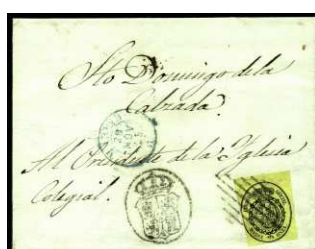 Sto Domingo de la
Calzada.
Al Presidente de la Yglesia
Colegial.